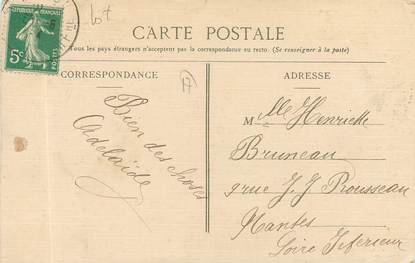 lot
CARTE POSTALE
Tous les pays étrangers n'acceptent pas la correspondance au recto. (Se renseigner à la poste)
CORRESPONDANCE
Bien des choses
Adelaïde
ADRESSE
Mlle Henriette
Bruneau
9 rue J. J. Rousseau
Nantes
Loire Inferieur
REPUBLIQUE FRANÇAISE
5c
POSTES